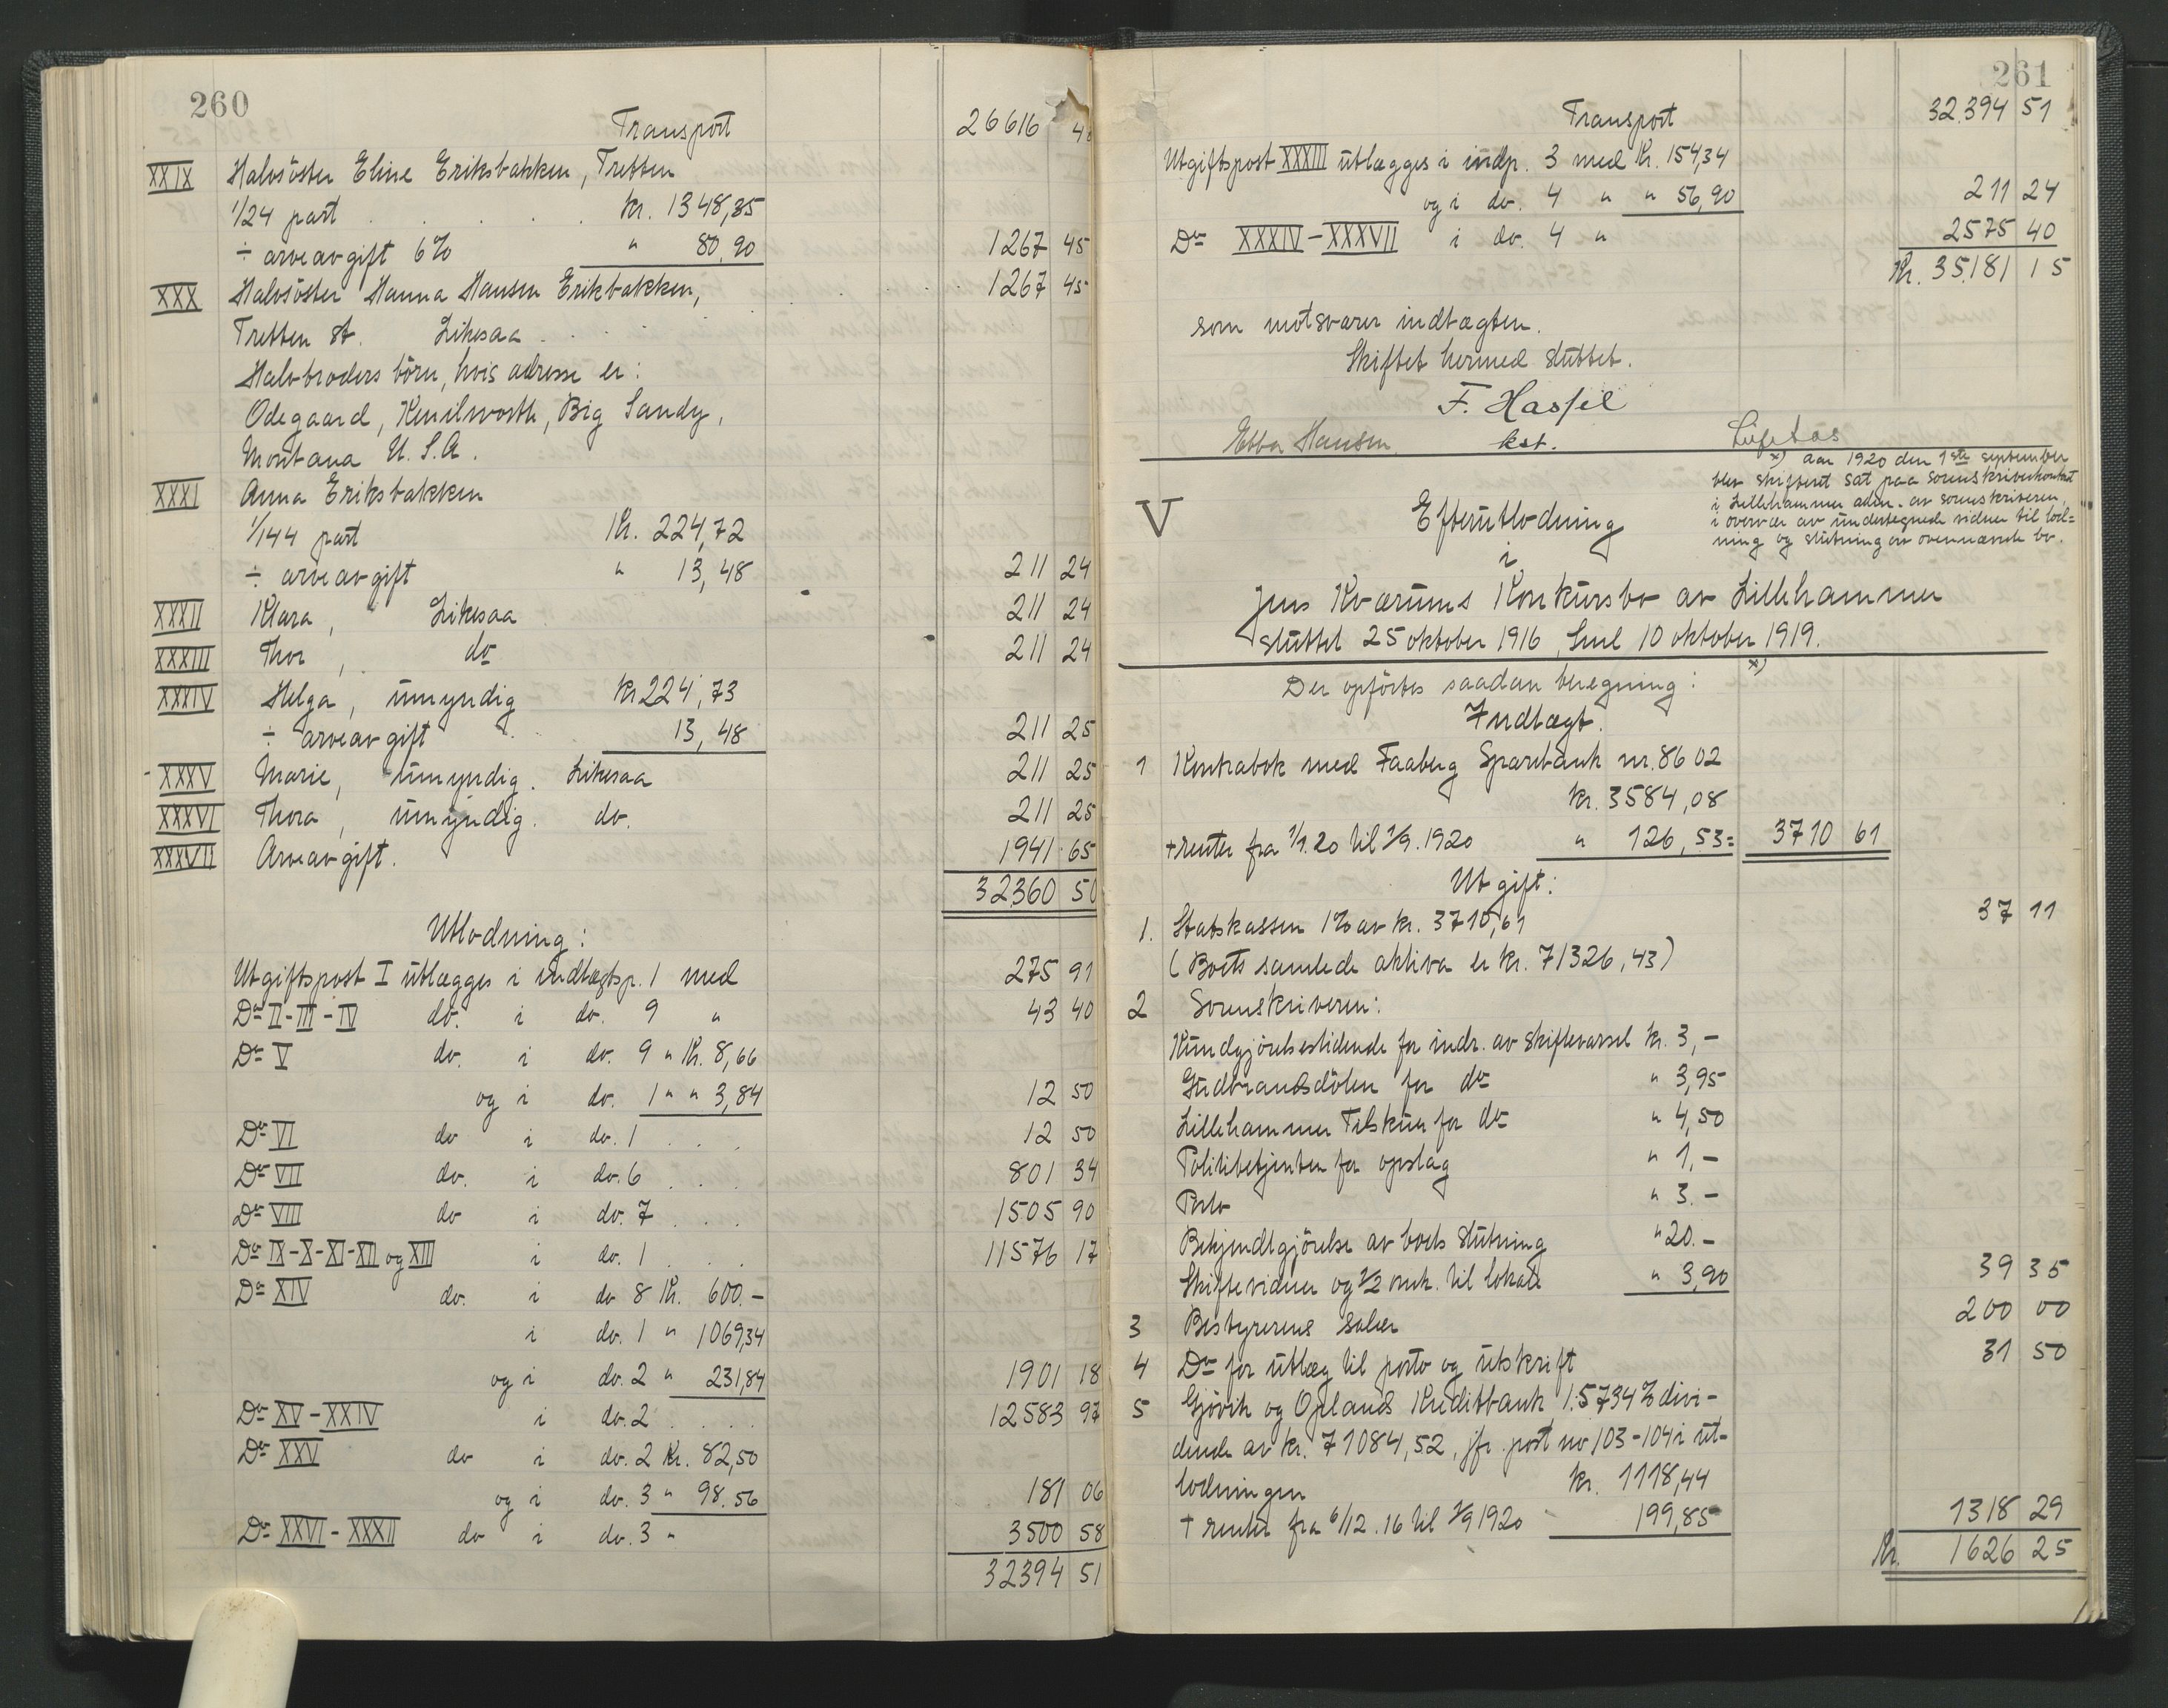 260
Transport 26616 4
XXIX Halvsöster Eline Eriksbakken, Tretten
1/24 part . . . . . kr. 1348,35
÷ arveavgift 6% " 80,90 1267 45
XXX Halvsöster Hanna Hansen Erikbakken, . . . . 1267 45
Tretten st. Likesaa . . . .
Halvbroders börn, hvis adresse er:
Odegaard, Kenilworth, Big Sandy,
Montana U.S.A.
XXXI Anna Eriksbakken
1/144 part Kr. 224,72
÷ arveavgift " 13,48 211 24
XXXII Klara, Likesaa 211 24
XXXIII Thor, do 211 24
XXXIV Helga, umyndig kr 224,73
÷ arveavgift 13,48 211 25
XXXV Marie, umyndig. Likesaa 211 25
XXXVI Thora, umyndig. do. 211 25
XXXVII Arveavgift. 1941 65
32360 50
Utlodning:
Utgiftspost I utlægges i indtægtsp. 1 med 275 91
Do II-III-IV do. i do. 9 " 43 40
Do V do. i do. 9 " Kr. 8,66
og i do. 1 " " 3,84 12 50
Do VI do i do. 1 . . . 12 50
Do VII do. i do. 6 . . . 801 34
Do VIII do i do. 7 . . . 1505 90
Do IX-X-XI-XII og XIII i do. 1 . . . 11576 17
Do XIV do. i do 8 Kr. 600.-
i do. 1 " 1069,34
og i do. 2 " 231,84 1901 18
Do XV-XXIV i do. 2 . . . . 12583 97
Do XXV do i do. 2 Kr. 82,50
og i do. 3 " 98.56 181 06
Do XXVI-XXXII do i do. 3 " 3500 58
32394 51
261
Transport 32.394 51
Utgiftspost XXXIII utlægges i indp. 3 med Kr. 154,34
og i do. 4 " " 56,90 211 24
Do XXXIV-XXXVII i do. 4 " 2575 40
Kr. 35181 15
som motsvarer indtægten.
Skiftet hermed sluttet.
F. Hassel
Ebba Hansen kst.
x) Aar 1920 den 1ste september
blev skifteret sat paa sorenskriverkontoret
i Lillehammer adm. av sorenskriveren,
i overvær av undertegnede vidner til lod=
ning og slutning av ovennævnte bo.
V Efterutlodning
i
Jens Kværums Konkursbo av Lillehammer
sluttet 25 oktober 1916, 10 oktober 1919.
x)
Der opførtes saadan beregning:
Indtægt.
1 Kontrabok med Faaberg Sparebank nr. 8602
kr. 3584,08
+ renter fra 1/1.20 til 1/9.1920 " 126,53= 3710 61
Utgift:
1. Statskassen 1% av kr. 3710,61 37 11
(Boets samlede aktiva er kr. 71326,43)
2 Sorenskriveren:
Kundgjørelsestidende for indr. av skiftevarsel kr. 3,-
Gudbrandsdølen for do " 3,95
Lillehammer Tilskuer for do " 4,50
Politibetjenten for opslag " 1,-
Porto " 3.-
Bekjendtgjörelse av boets slutning " 20.-
Skiftevidner og 1/2 omk. til lokale " 3,90 39 35
3 Bestyrerens salær 200 00
4 Do for utlæg til porto og utskrift 31 50
5 Gjøvik og Oplands Kreditbank 1.5734% divi-
dende av kr. 71084,52, jfr. post no 103-104 i ut-
lodningen kr. 1118,44
+ renter fra 6/12.16 til 1/9 1920 - 199,85 1318 29
Kr. 1626 25